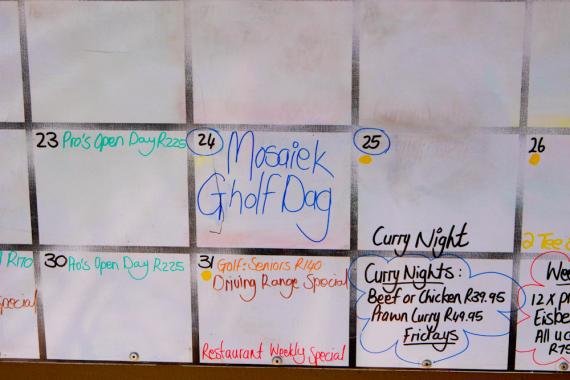 23 Pro's Open Day R225
24
Mosaiek
Gholf Dag
25
Curry Night
26
2 Tee
R170
Special
30 Pro's Open Day R225
31 Golf: Seniors R140
Driving Range Special
Restaurant Weekly Special
Curry Nights:
Beef or Chicken R39.95
Prawn Curry R49.95
Fridays
12 x
All u